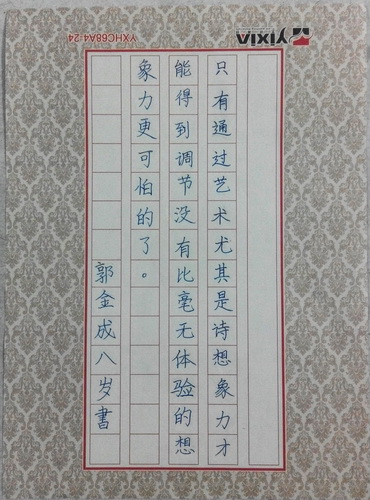 只有通过艺术尤其是诗想象力才
能得到调节没有比毫无体验的想
象力更可怕的了。
郭金成八岁书
YIXIA
YXHC68A4-24